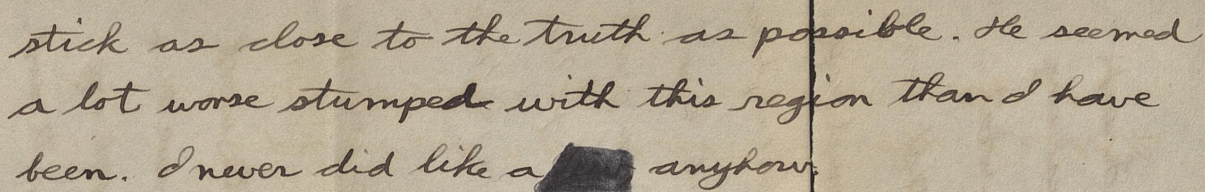 stick as close to the truth as possible. He seemed
a lot worse stumped with this region than I have
been. I never did like a anyhow.